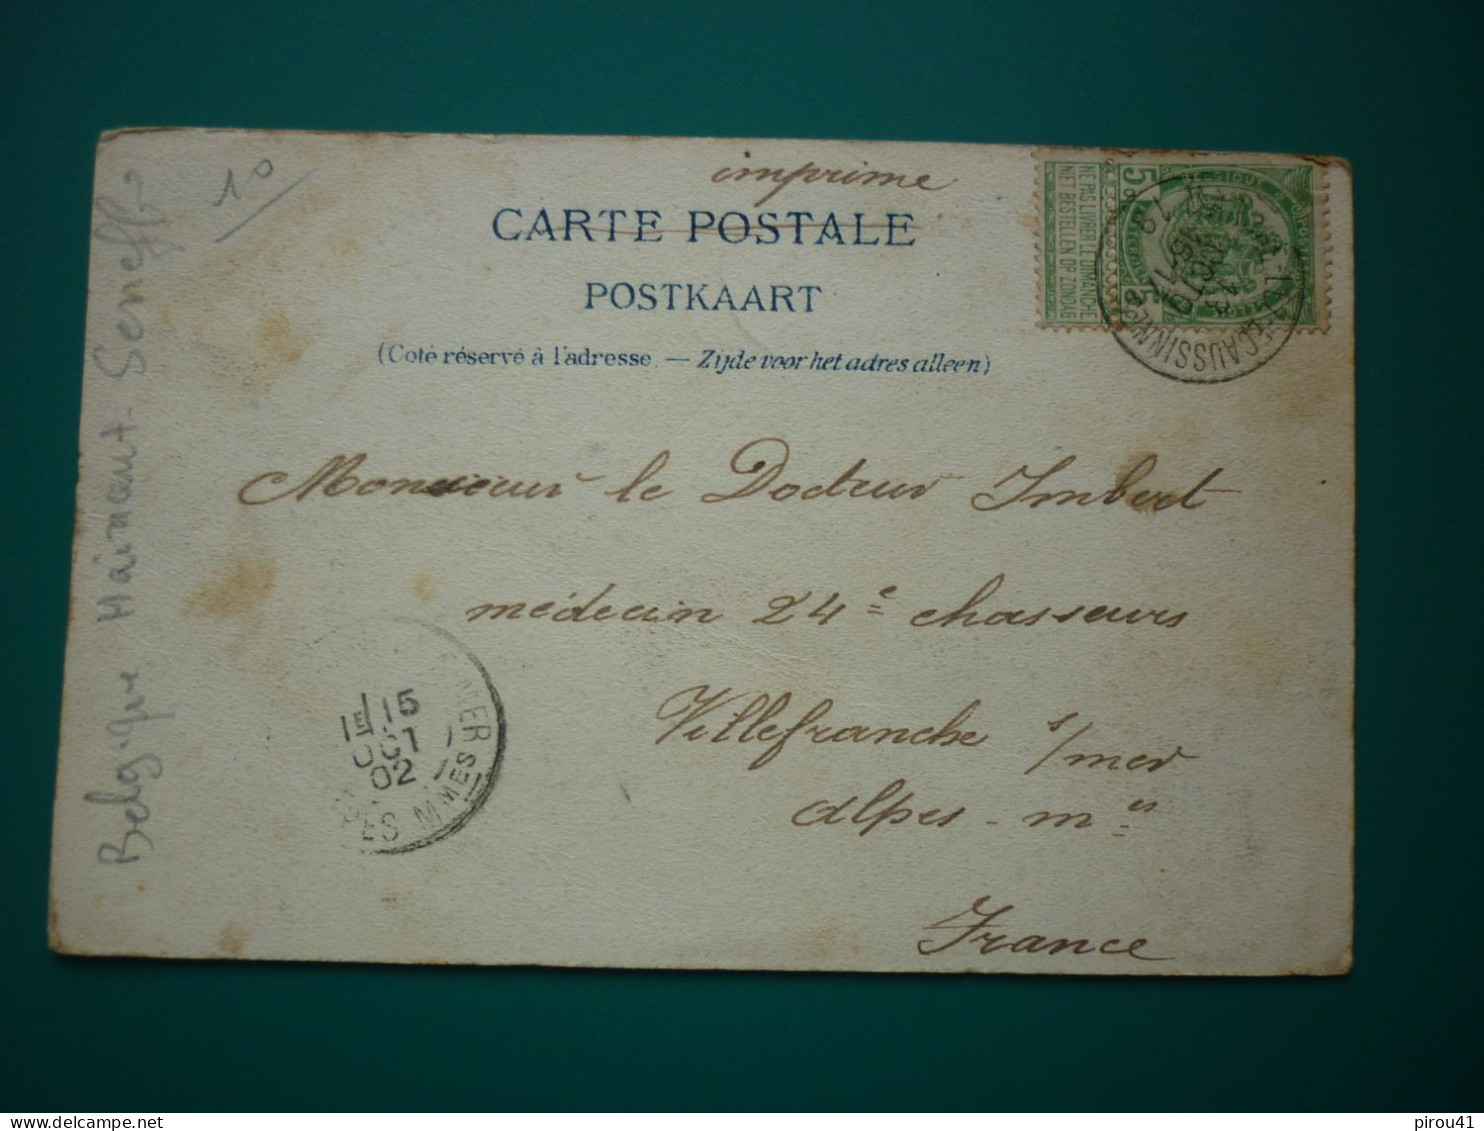 imprime
CARTE POSTALE
POSTKAART
(Coté réservé à l'adresse. — Zijde voor het adres alleen)
NE PAS LIVRER LE DIMANCHE
NIET BESTELLEN OP ZONDAG
5c
5c
BELGIQUE
13 OCT
ECAUSSINNES
10
Monsieur le Docteur Imbert
médecin 24e chasseurs
Villefranche s/mer
Alpes - mes
France
15
OCT
02
MER
ES MMES
Belgique Hainaut. Seneffe
pirou41